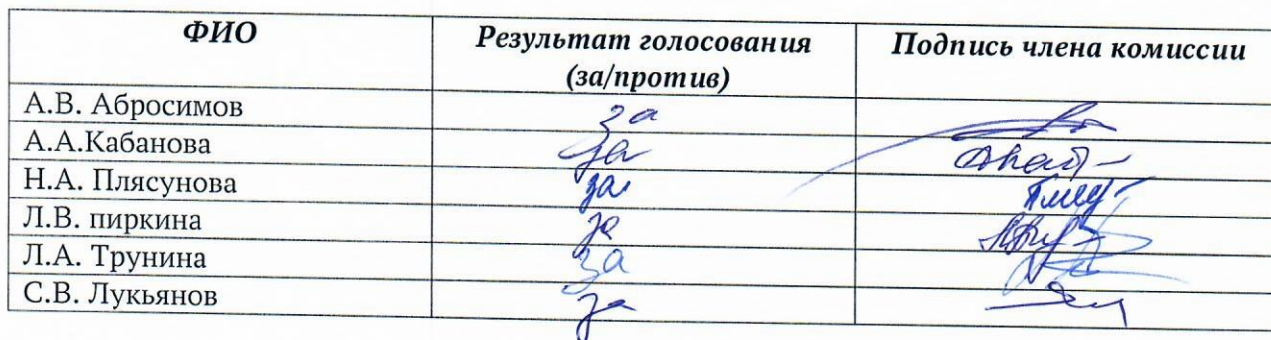 ФИО Результат голосования Подпись члена комиссии
(за/против)
А.В. Абросимов за
А.А.Кабанова за
Н.А. Плясунова за
Л.В. пиркина за
Л.А. Трунина за
С.В. Лукьянов за